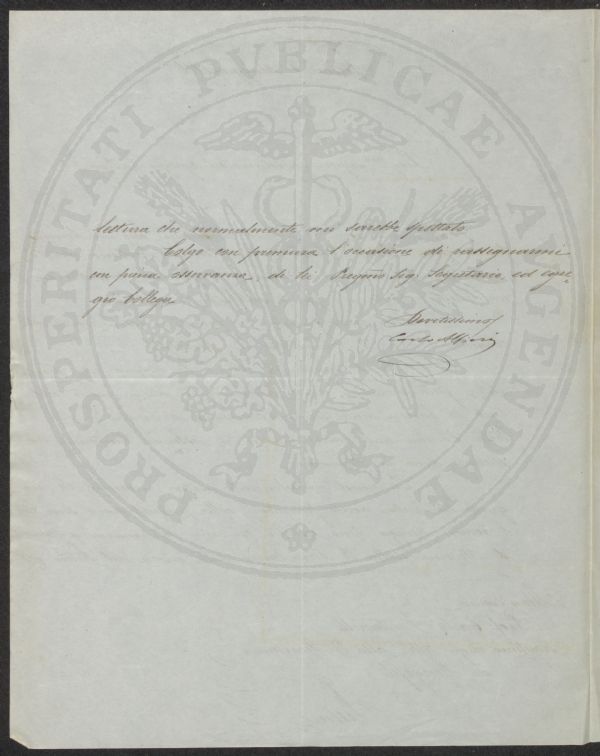 PROSPERITATI PVBLICAE AVGENDAE
lettura che normalmente mi sarebbe spettato
Colgo con premura l'occasione di rassegnarmi
con piena osservanza, di lei Preg.mo Sig. Segretario ed egre-
gio Collega
Devotissimo
Carlo Alfieri